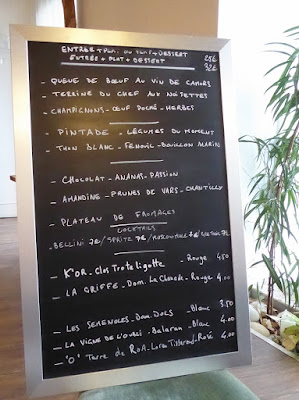 ENTRÉE + PLAT OU PLAT + DESSERT 25€
ENTRÉE + PLAT + DESSERT 32€
- QUEUE DE BŒUF AU VIN DE CAHORS
- TERRINE DU CHEF AUX NOISETTES
- CHAMPIGNONS - ŒUF POCHÉ - HERBES
- PINTADE - LÉGUMES DU MOMENT
- THON BLANC - FENOUIL - BOUILLON MARIN
- CHOCOLAT - ANANAS - PASSION
- AMANDINE - PRUNES DE VARS - CHANTILLY
- PLATEAU DE FROMAGES
COCKTAILS
- BELLINI 7€/SPRITZ 7€/
- K'OR - clos Trotteligotte - Rouge 4.50
- LA GRIFFE - Dom. La - Rouge 4.00
- LES - Dom. - Blanc 3.50
- LA VIGNE DE - Balaran - Blanc 4.00
- "O" Terre de - Rosé 4.00